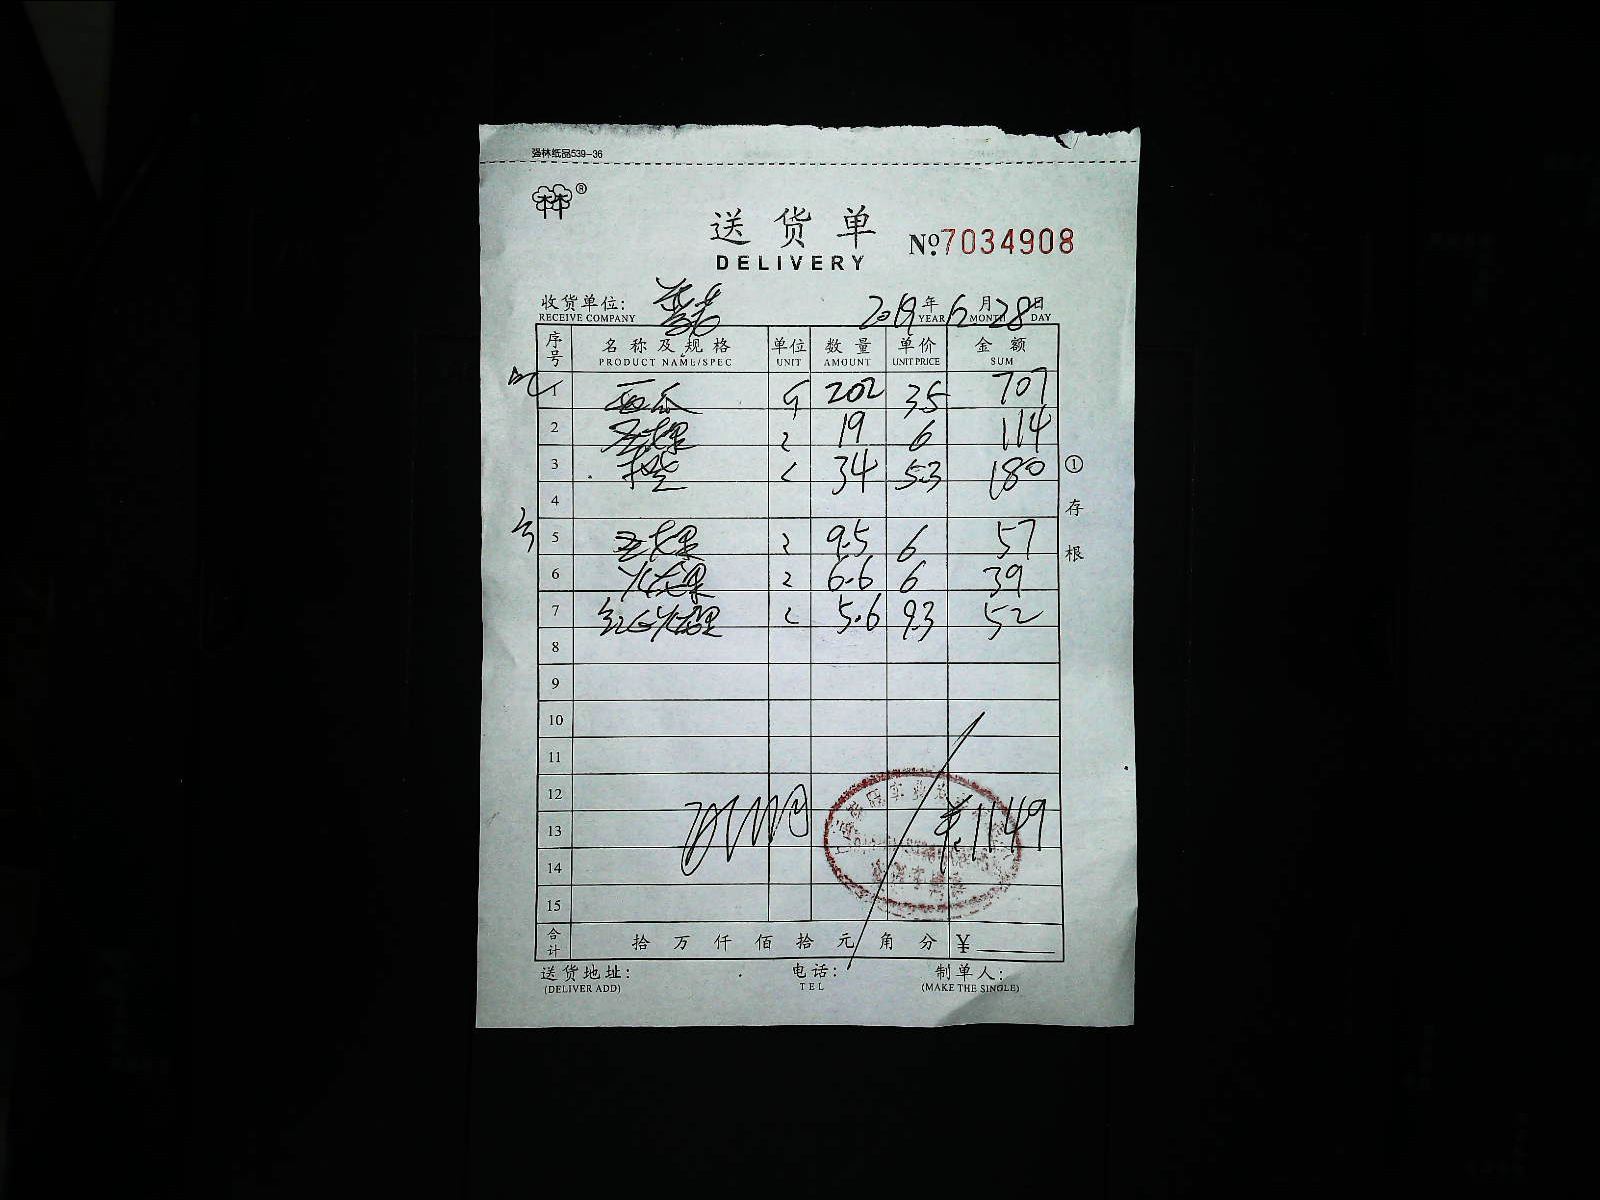 强林纸品539-36
®
送货单
DELIVERY
№7034908
收货单位:
RECEIVE COMPANY
2019年6月28日
YEAR MONTH DAY
序号 名称及规格 单位 数量 单价 金额
PRODUCT NAME/SPEC UNIT AMOUNT UNIT PRICE SUM
1 西瓜 202 35 707
2 19 6 114
3 34 5.3 180
4
5 9.5 6 57
6 火龙果 6.6 6 39
7 红心火龙果 5.6 9.3 52
8
9
10
11
12
13 1149
14
15
合计 拾万仟佰拾元角分 ¥
①存根
送货地址: 电话: 制单人:
(DELIVER ADD) TEL (MAKE THE SINGLE)